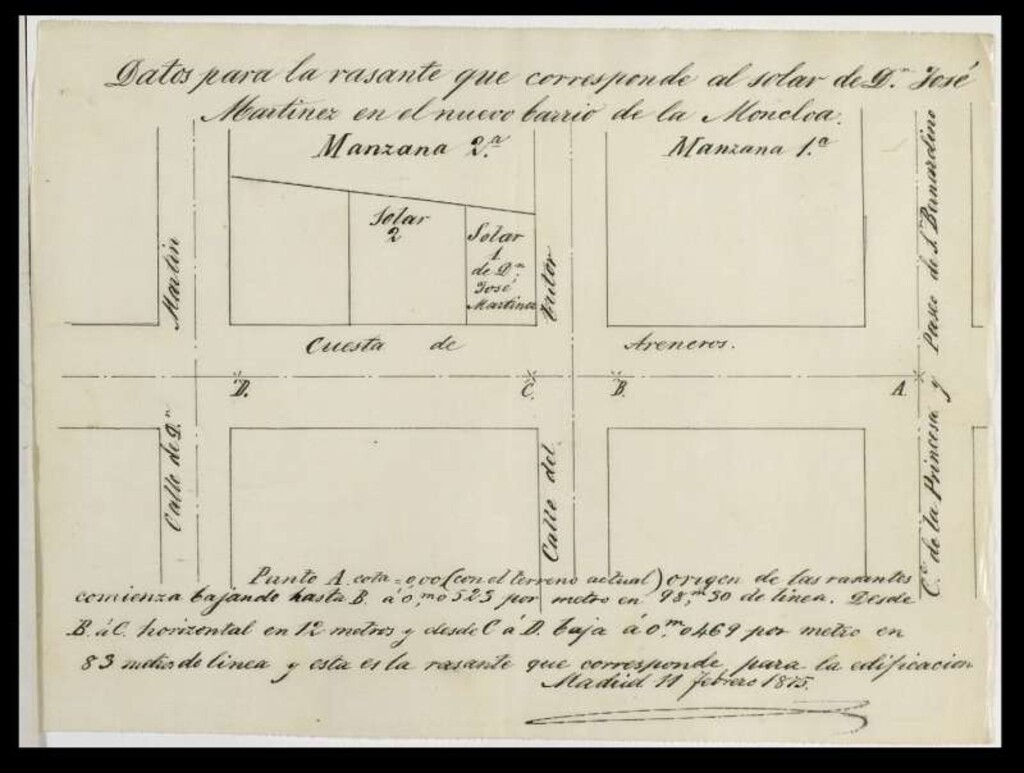 Datos para la rasante que corresponde al solar de D.n José
Martinez en el nuevo barrio de la Moncloa.
Manzana 2.a
Manzana 1.a
Solar
2
Solar
1
de D.n
José
Martinez
Calle de D.n Martin
Calle del Tutor
C.e de la Princesa y Paseo de S.n Bernardino
Cuesta de Areneros.
D.
C.
B.
A.
Punto A. cota = 0,00 (con el terreno actual) origen de las rasantes
comienza bajando hasta B. á 0,m0523 por metro en 98,m30 de linea. Desde
B. á C. horizontal en 12 metros y desde C á D. baja á 0,m0469 por metro en
83 metros de linea y esta es la rasante que corresponde para la edificacion
Madrid 11 febrero 1875.